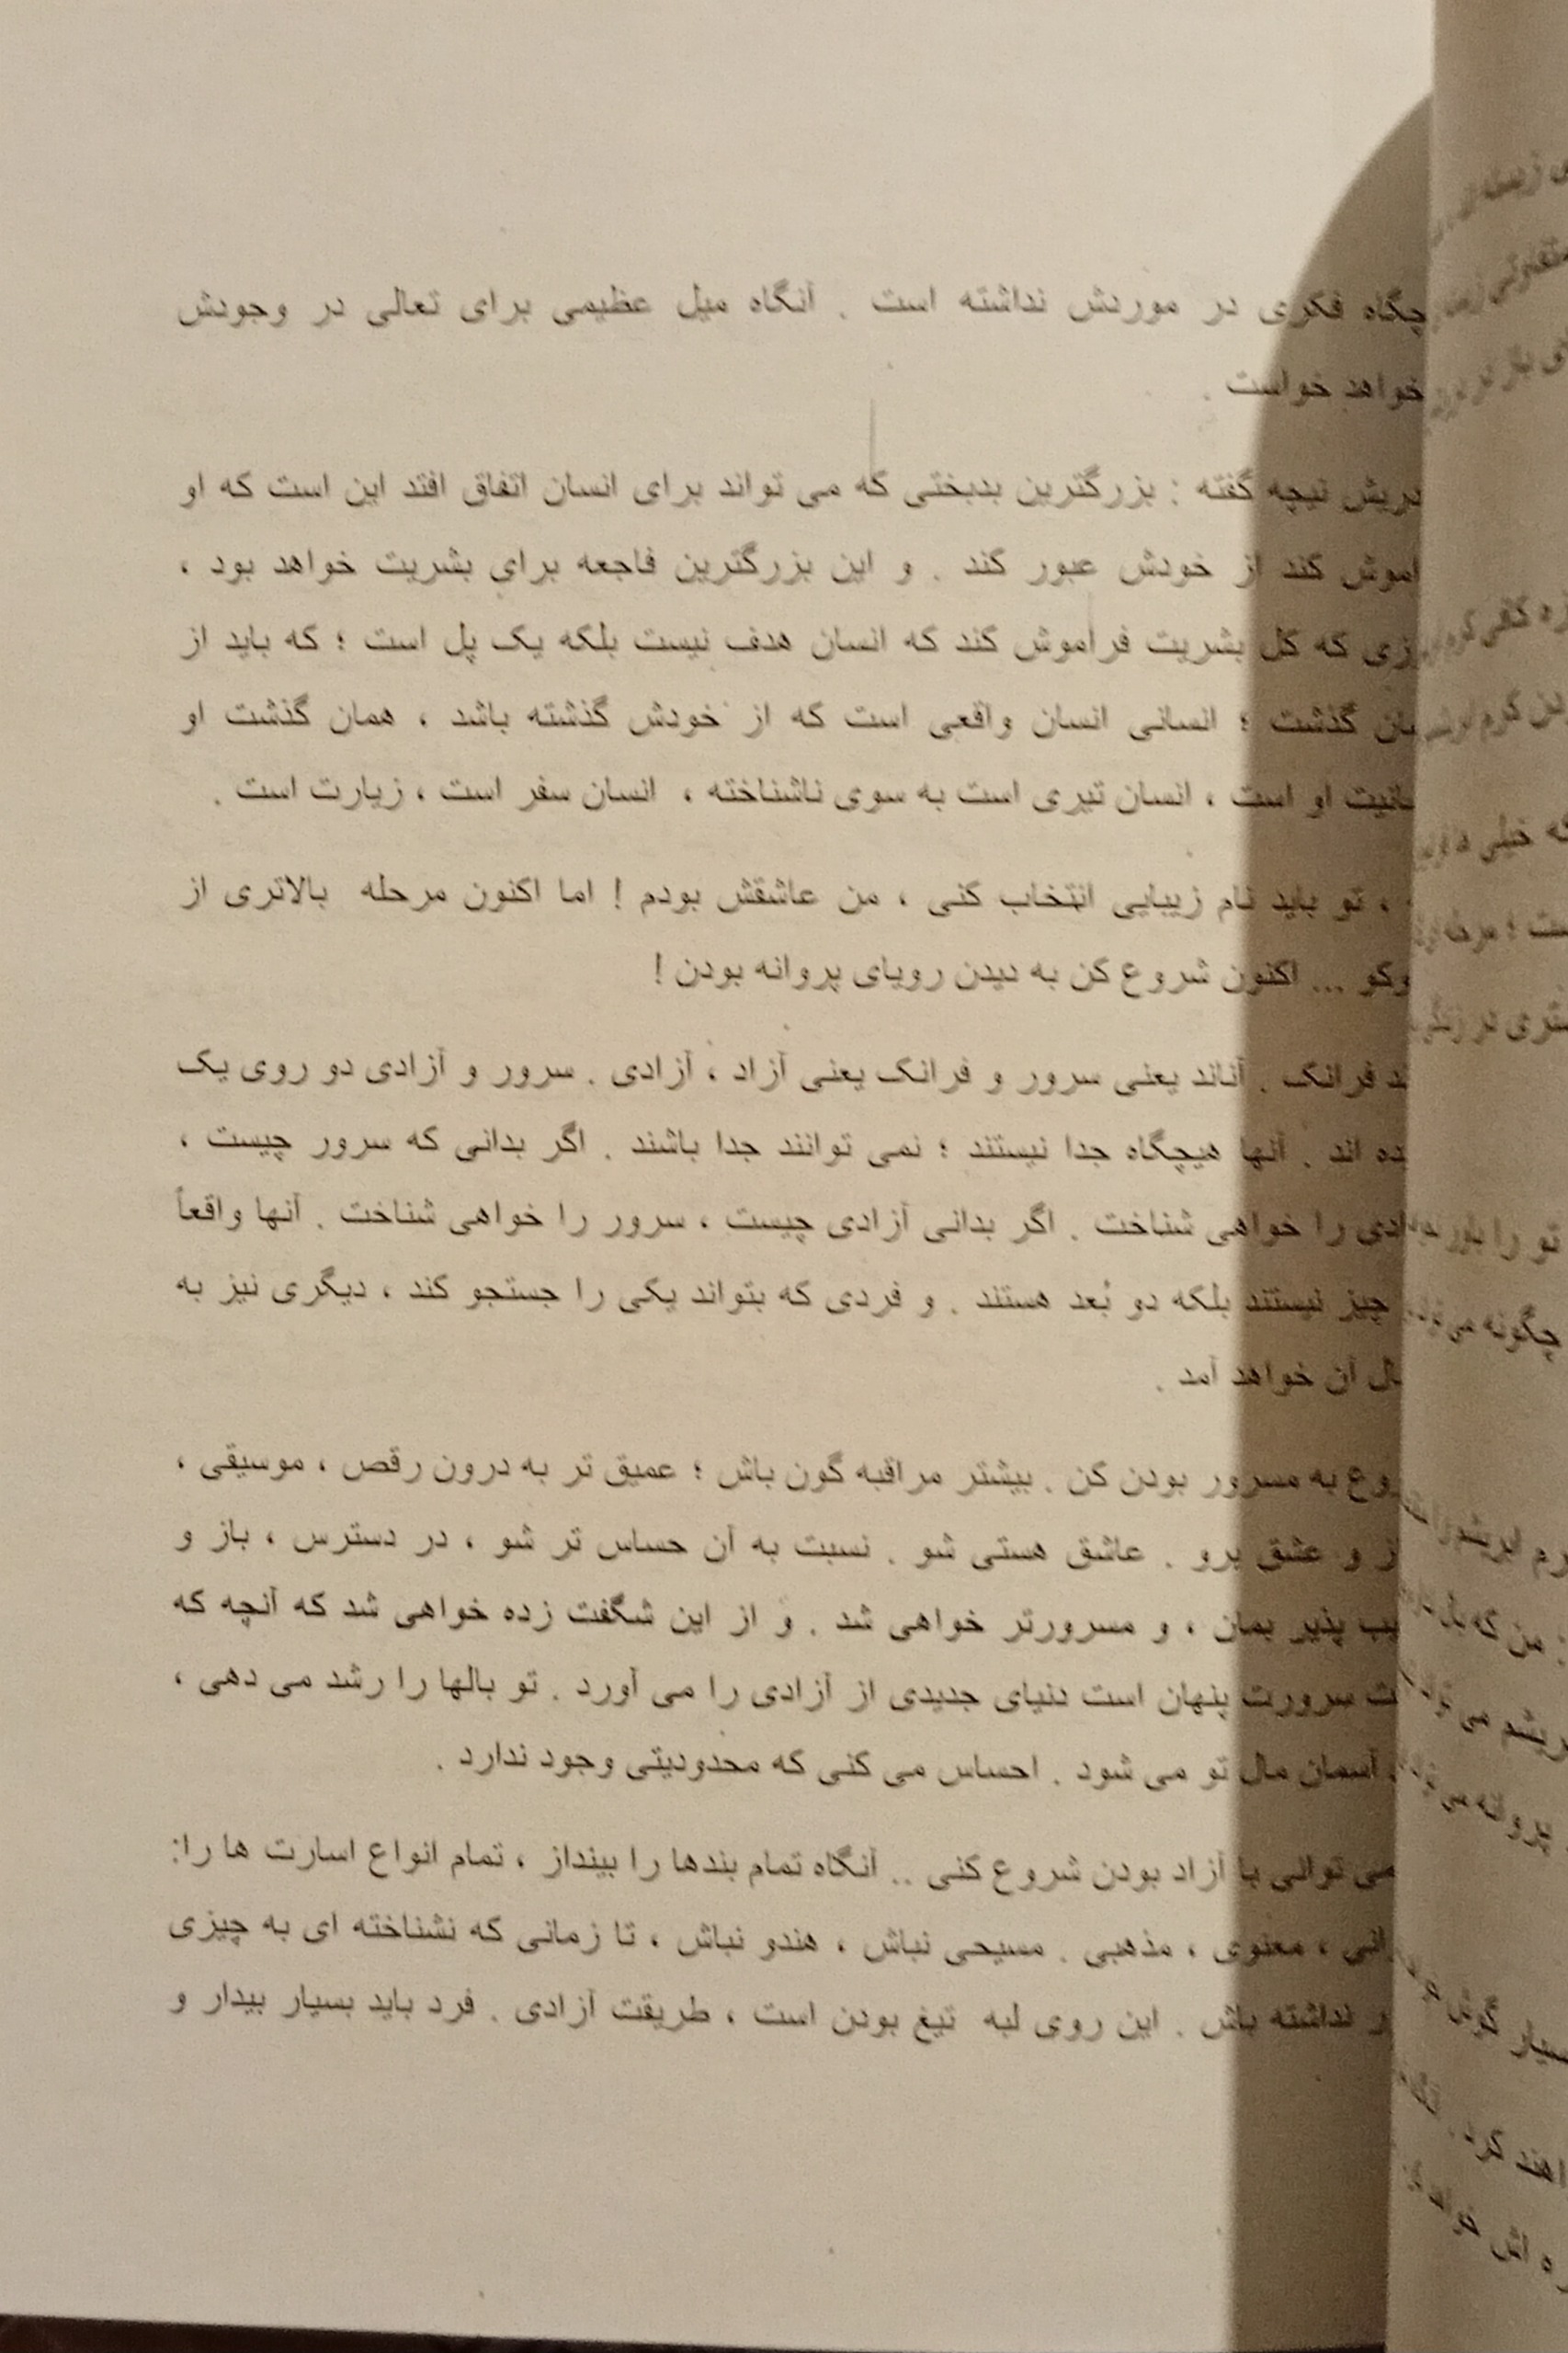 فکری در موردش نداشته است . آنگاه میل عظیمی برای تعالی در وجودش
خواهد خواست .
نیچه گفته : بزرگترین بدبختی که می تواند برای انسان اتفاق افتد این است که او
کند از خودش عبور کند . و این بزرگترین فاجعه برای بشریت خواهد بود ،
که کل بشریت فراموش کند که انسان هدف نیست بلکه یک پل است ؛ که باید از
گذشت ؛ انسانی انسان واقعی است که از خودش گذشته باشد ، همان گذشت او
او است ، انسان تیری است به سوی ناشناخته ، انسان سفر است ، زیارت است .
، تو باید نام زیبایی انتخاب کنی ، من عاشقش بودم ! اما اکنون مرحله بالاتری از
... اکنون شروع کن به دیدن رویای پروانه بودن !
فرانک . آناند یعنی سرور و فرانک یعنی آزاد ، آزادی . سرور و آزادی دو روی یک
اند . آنها هیچگاه جدا نیستند ؛ نمی توانند جدا باشند . اگر بدانی که سرور چیست ،
را خواهی شناخت . اگر بدانی آزادی چیست ، سرور را خواهی شناخت . آنها واقعاً
چیز نیستند بلکه دو بُعد هستند . و فردی که بتواند یکی را جستجو کند ، دیگری نیز به
آن خواهد آمد .
به مسرور بودن کن . بیشتر مراقبه گون باش ؛ عمیق تر به درون رقص ، موسیقی ،
و عشق برو . عاشق هستی شو . نسبت به آن حساس تر شو ، در دسترس ، باز و
پذیر بمان ، و مسرورتر خواهی شد . و از این شگفت زده خواهی شد که آنچه که
سرورت پنهان است دنیای جدیدی از آزادی را می آورد . تو بالها را رشد می دهی ،
آسمان مال تو می شود . احساس می کنی که محدودیتی وجود ندارد .
می توانی با آزاد بودن شروع کنی .. آنگاه تمام بندها را بینداز ، تمام انواع اسارت ها را:
، معنوی ، مذهبی . مسیحی نباش ، هندو نباش ، تا زمانی که نشناخته ای به چیزی
نداشته باش . این روی لبه تیغ بودن است ، طریقت آزادی . فرد باید بسیار بیدار و